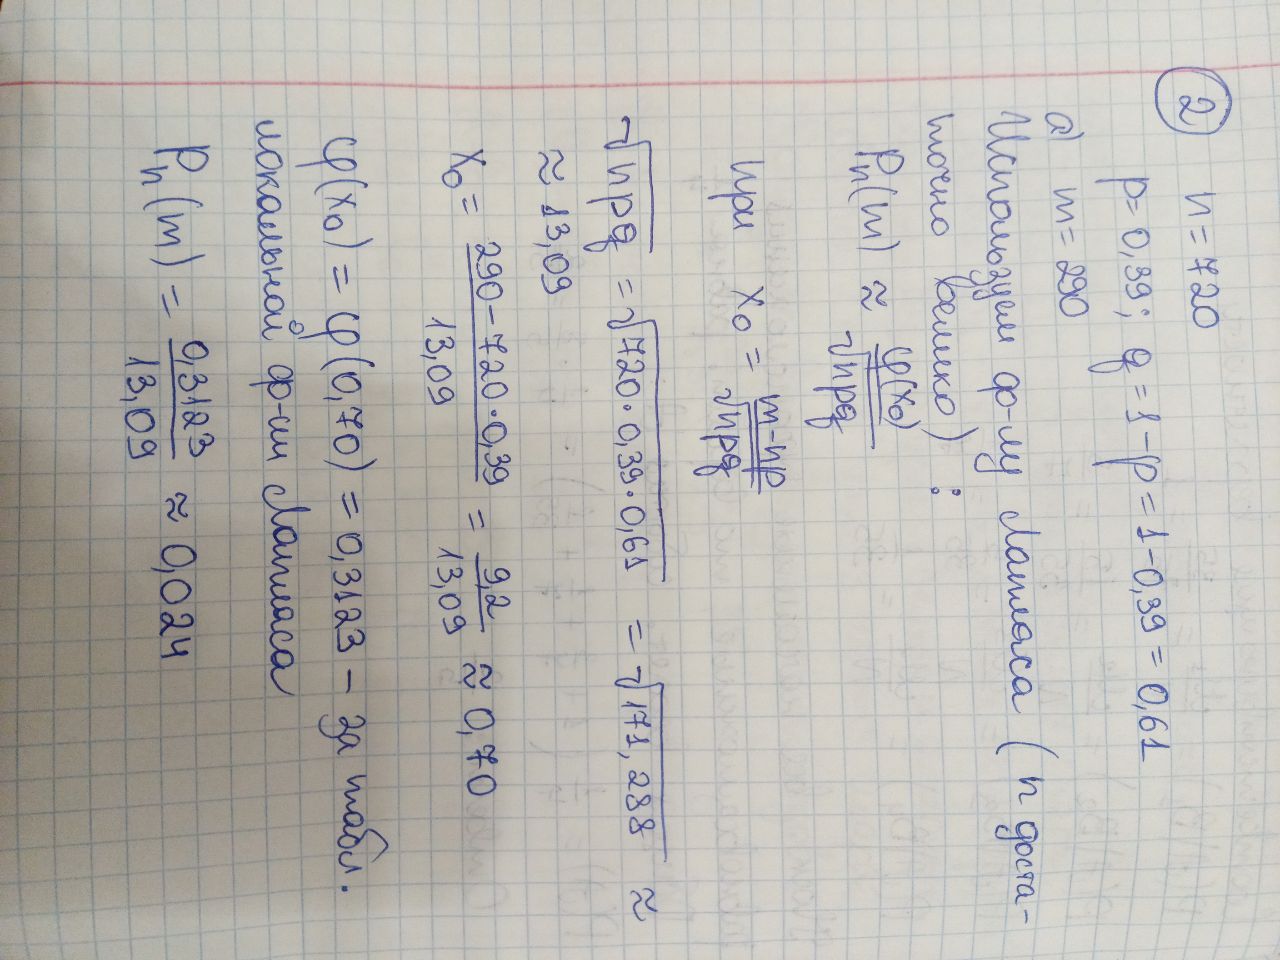 2
n=720
p=0,39; q=1-p=1-0,39=0,61
а) m=290
Используем ф-лу Лапласа (n доста-
точно велико):
Pn(m) ≈ φ(x₀)/√npq
при x₀ = (m-np)/√npq
√npq = √720·0,39·0,61 = √171,288 ≈
≈ 13,09
x₀ = (290-720·0,39)/13,09 = 9,2/13,09 ≈ 0,70
φ(x₀) = φ(0,70) = 0,3123 - за табл.
локальной ф-ии Лапласа
Pn(m) = 0,3123/13,09 ≈ 0,024